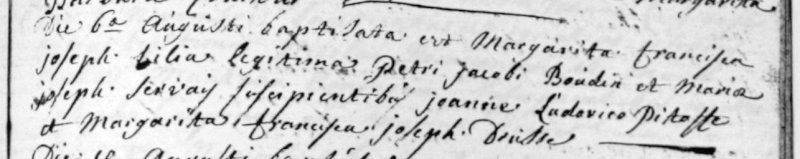 Margarita
Die 6a Augusti baptisata est Margarita francisca
joseph filia legitima Petri jacobi Boudin et Mariæ
joseph Servais suscipientibus joanne Ludovico Pitosse
et Margarita francisca joseph Dousse
Die Augusti